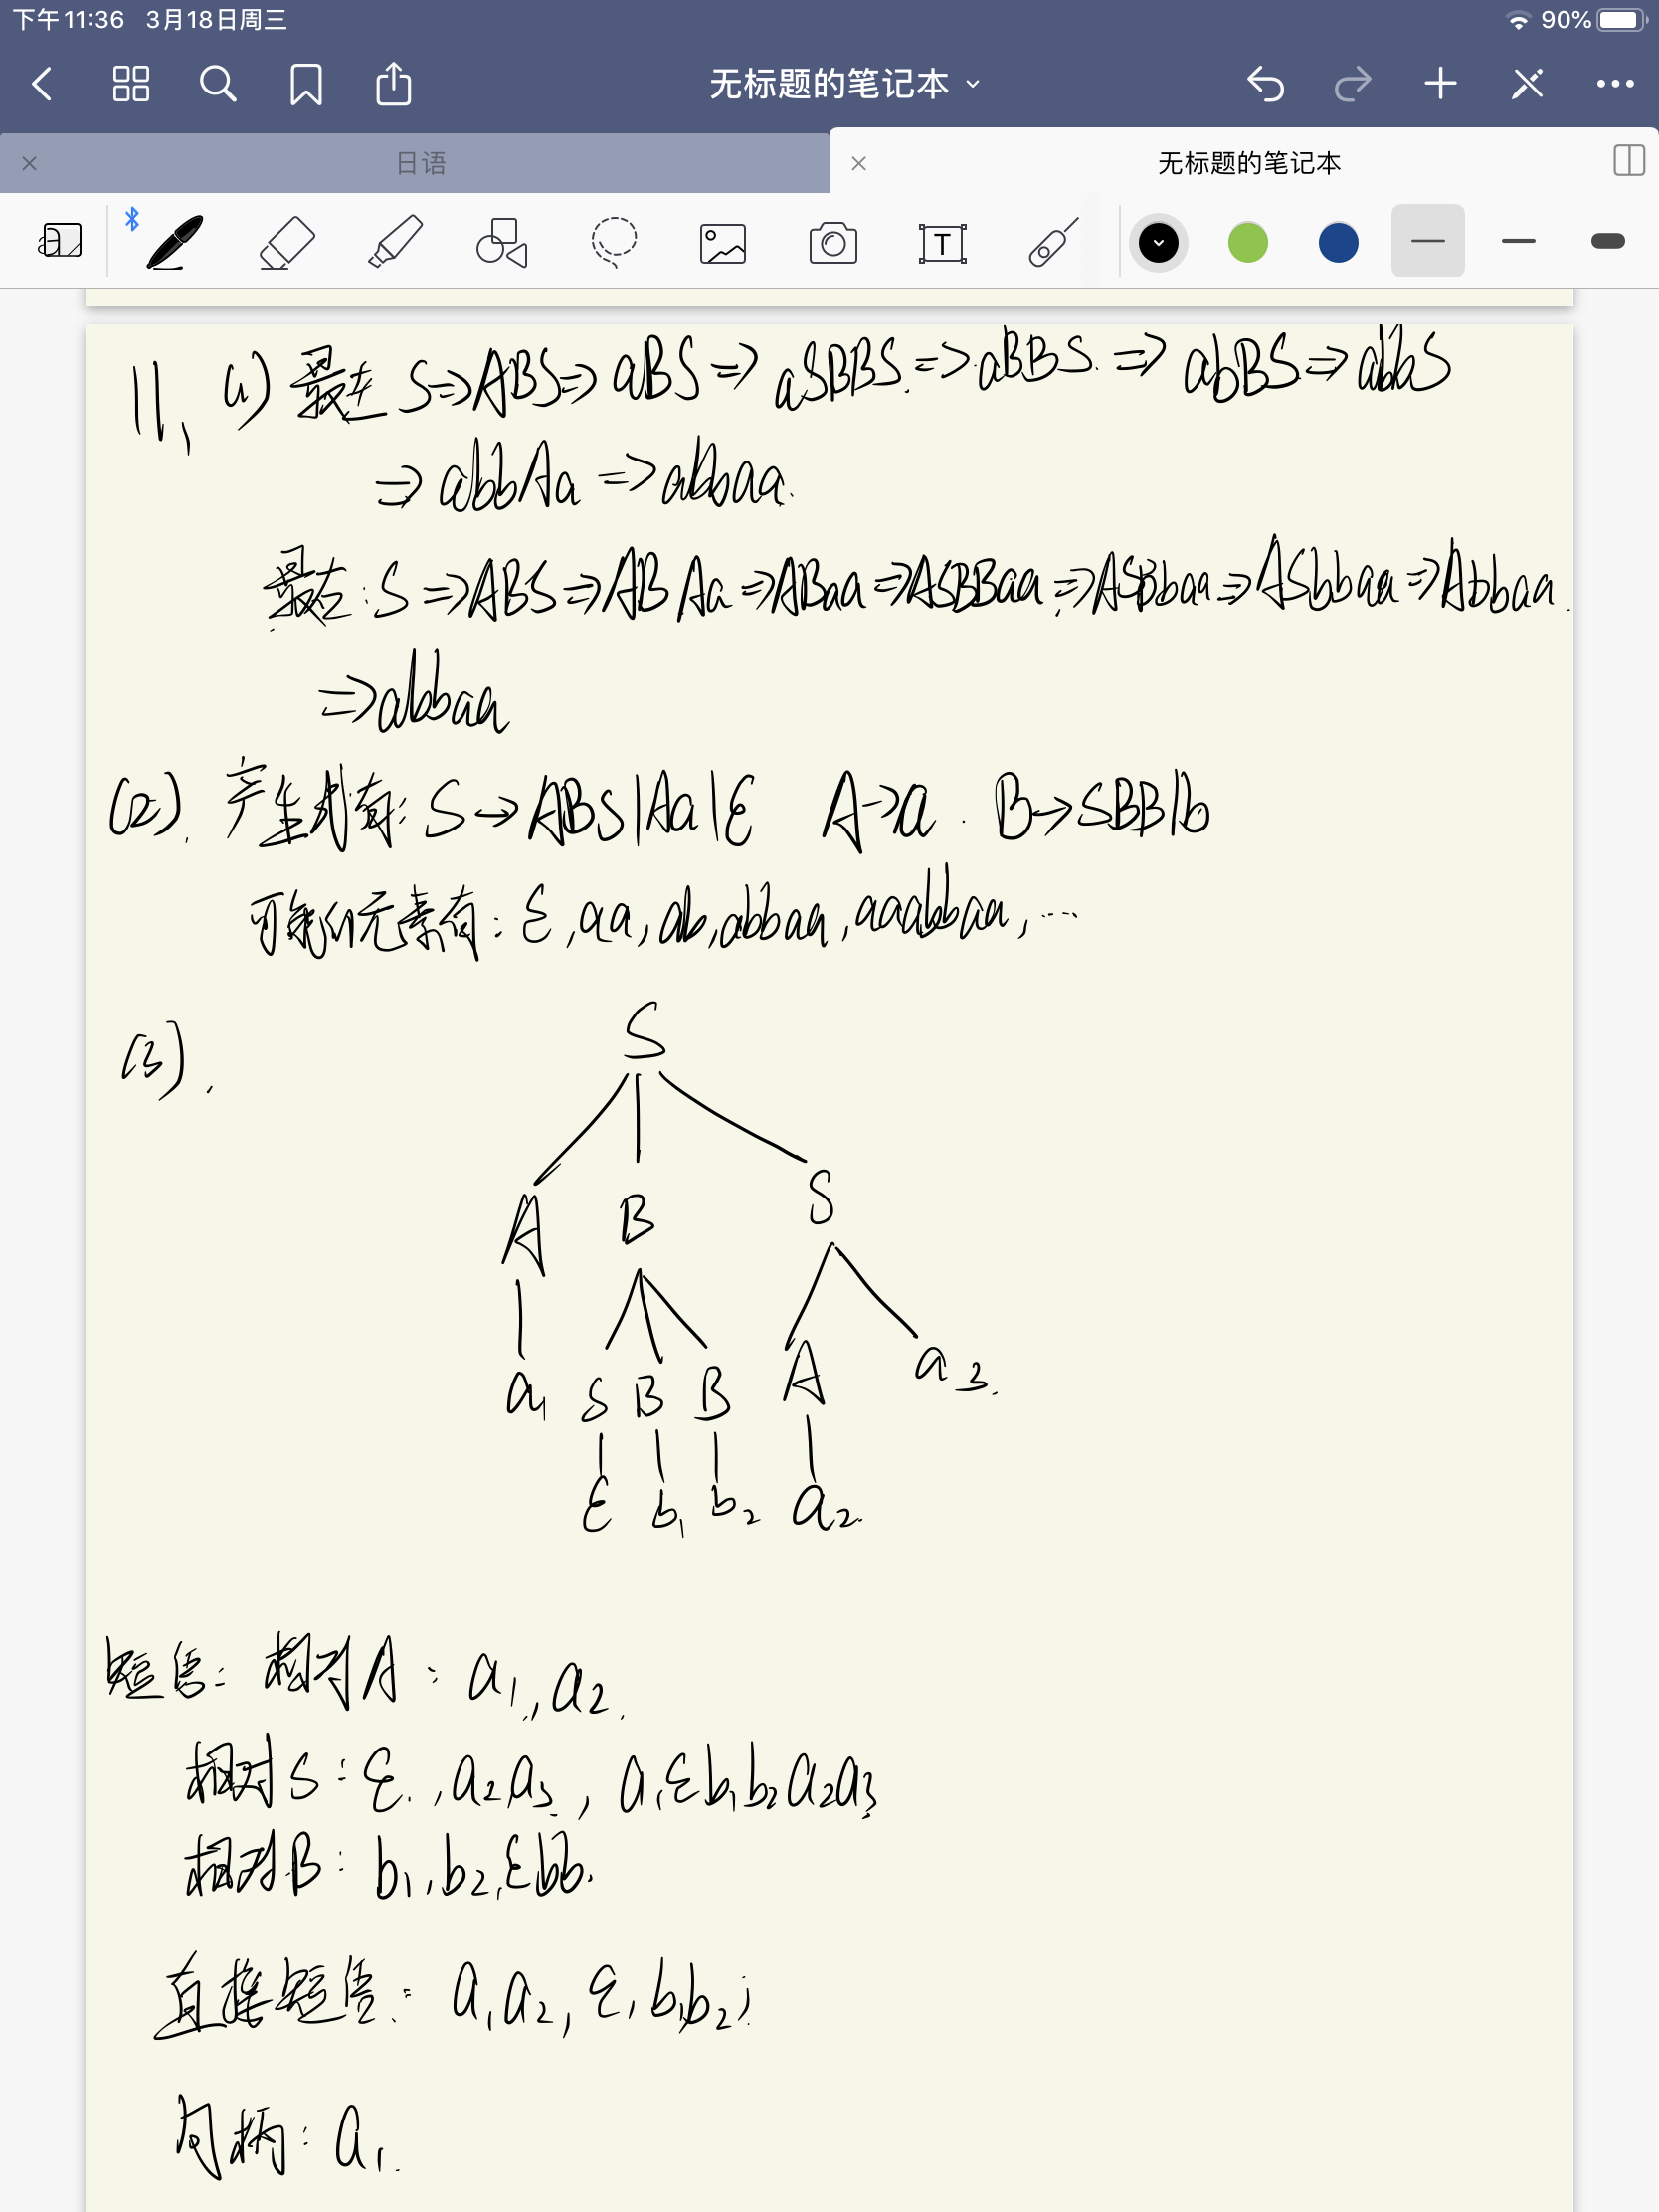 下午11:36 3月18日周三 90%
无标题的笔记本
日语 无标题的笔记本
11、(1) 最左 S⇒ABS⇒aBS⇒aSBBS⇒aBBS⇒abBS⇒abbS
⇒abbAa⇒abbaa.
最右:S⇒ABS⇒ABAa⇒ABaa⇒ASBBaa⇒ASBbaa⇒ASbbaa⇒Abbaa.
⇒abbaa
(2). 产生式有: S→ABS|Aa|ε A→a. B→SBB|b
可能的元素有: ε,aa,ab,abbaa,aaabbaa,…
(3).
S
A B S
a₁ S B B A a₃.
ε b₁ b₂ a₂.
短语: 相对A: a₁,a₂.
相对S: ε,a₂a₃, a₁εb₁b₂a₂a₃
相对B: b₁,b₂,εbb.
直接短语: a₁a₂,ε,b₁b₂;
句柄: a₁.